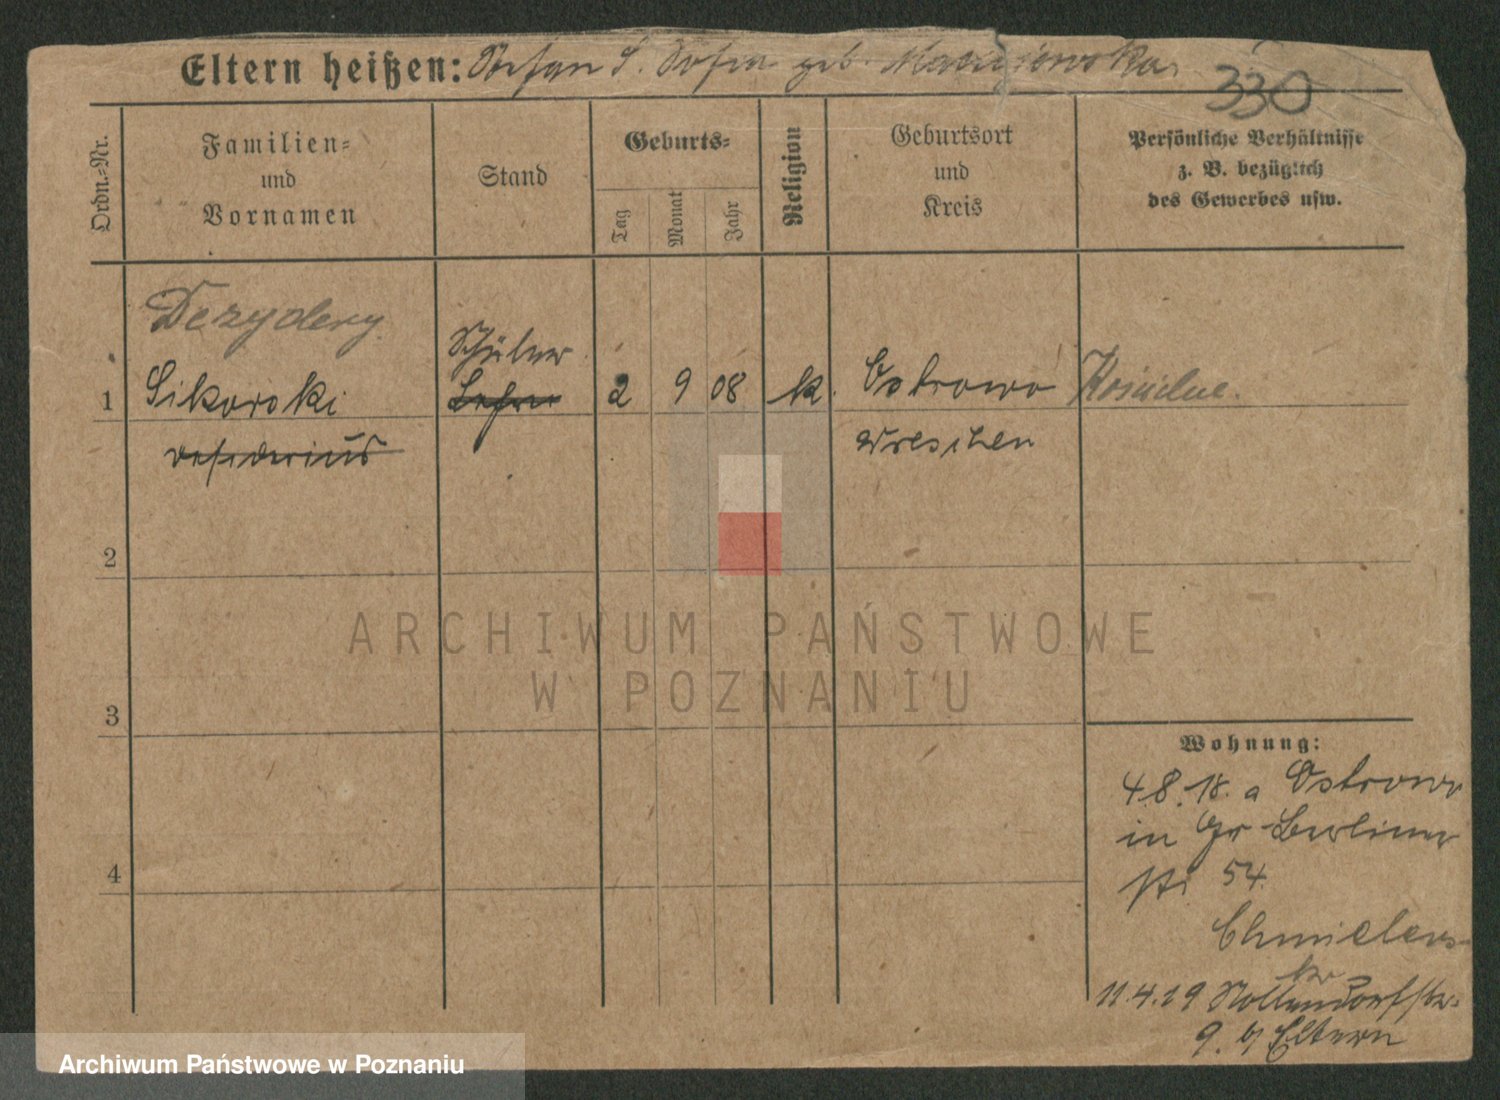 Eltern heißen: Stefan S. Sofia geb. Maciejewska
330
Ordn.-Nr.
Familien-
und
Vornamen
Stand
Geburts-
Tag
Monat
Jahr
Religion
Geburtsort
und
Kreis
Persönliche Verhältnisse
z. B. bezüglich
des Gewerbes usw.
Dezydery
Schüler
1 Sikorski 2 9 08 k. Ostrowo
Desiderius
Wreschen
2
ARCHIWUM PAŃSTWOWE
W POZNANIU
3
Wohnung:
4.8.18. a Ostrowo
in Gr Berliner
str 54
4
Chmielews-
ka
11.4.19 Nollendorfstr.
9. b/ Eltern
Archiwum Państwowe w Poznaniu